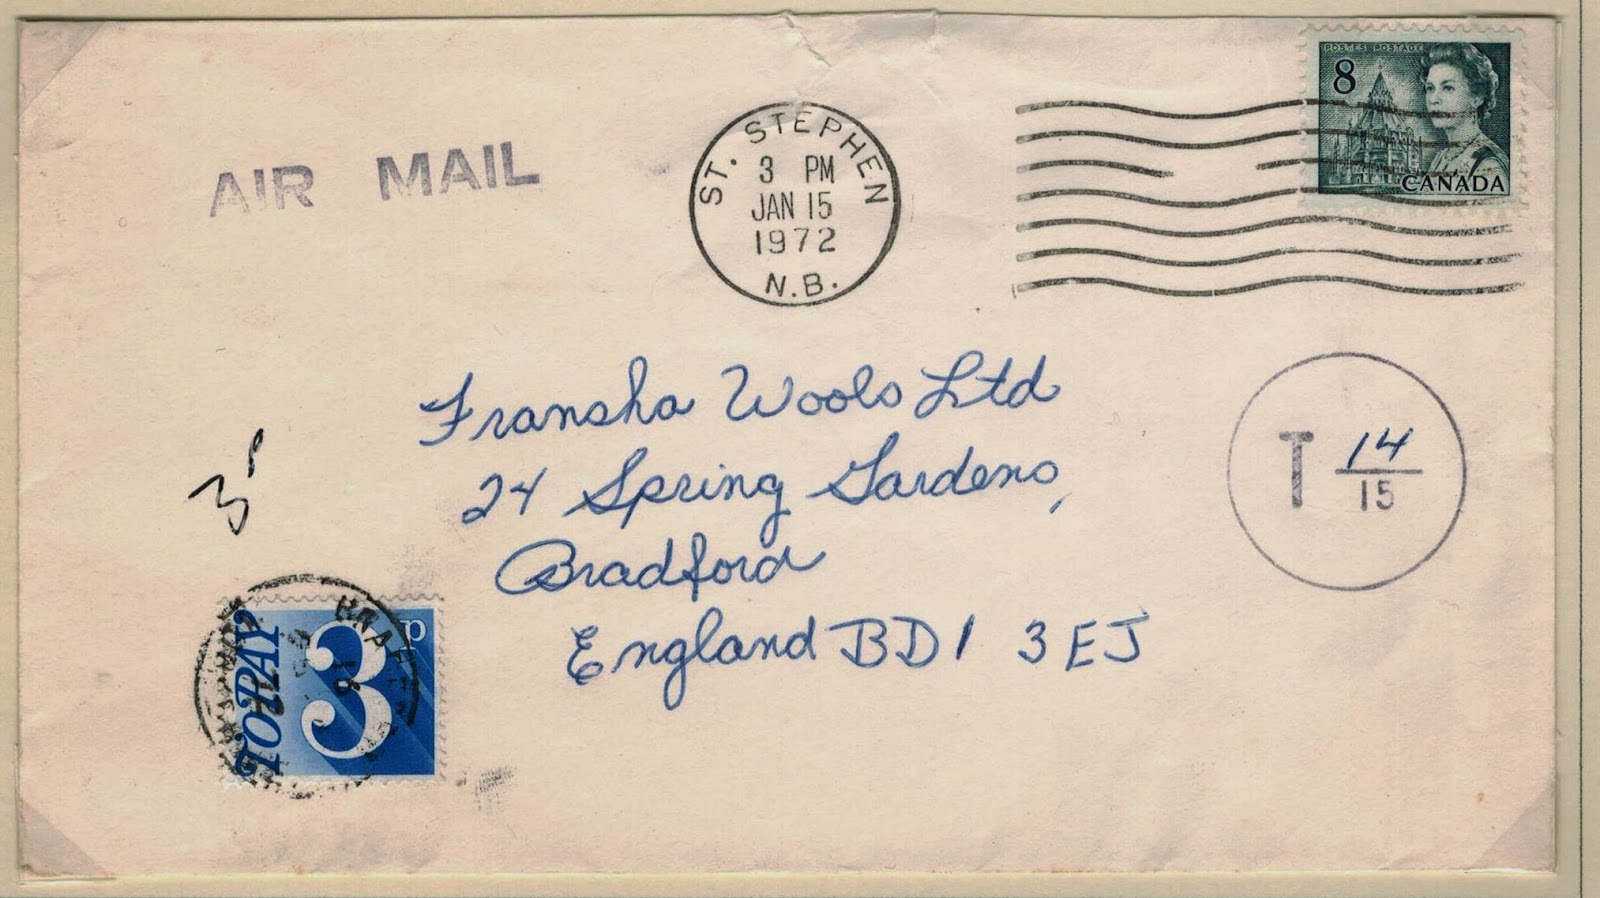 POSTES POSTAGE
8
CANADA
AIR MAIL
ST. STEPHEN
3 PM
JAN 15
1972
N.B.
Fransha Wools Ltd
24 Spring Gardens,
Bradford
England BD1 3EJ
T 14
15
3P
TO PAY 3P